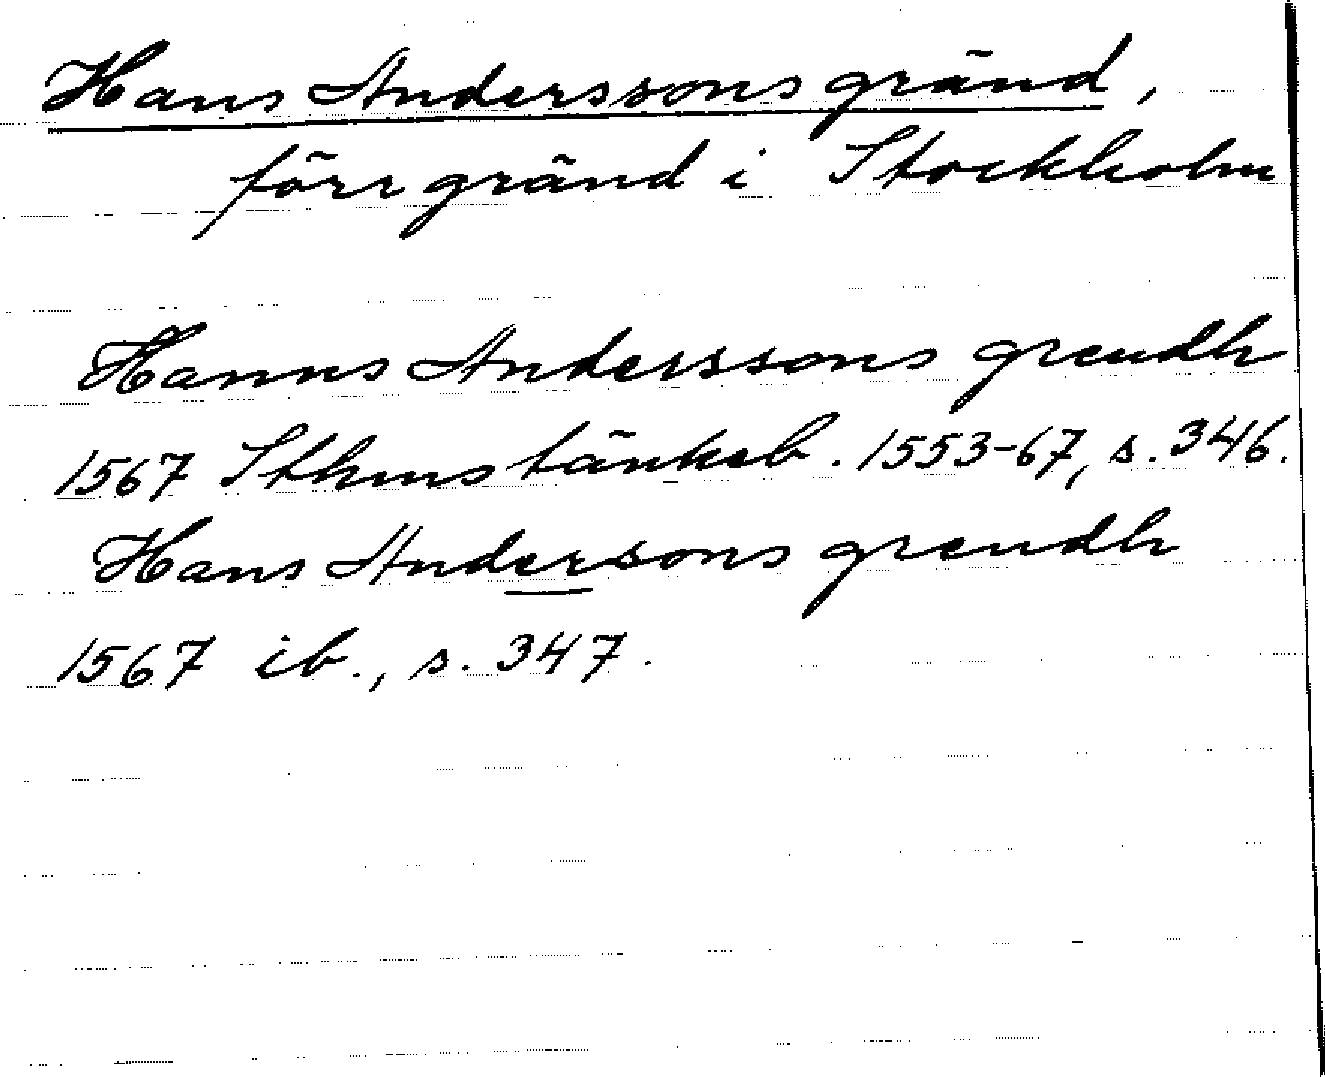 Hans Anderssons gränd,
förr gränd i Stockholm
Hanns Anderssons grendh
1567 Sthms tänkeb. 1553-67, s. 346.
Hans Andersons grendh
1567 ib., s. 347.